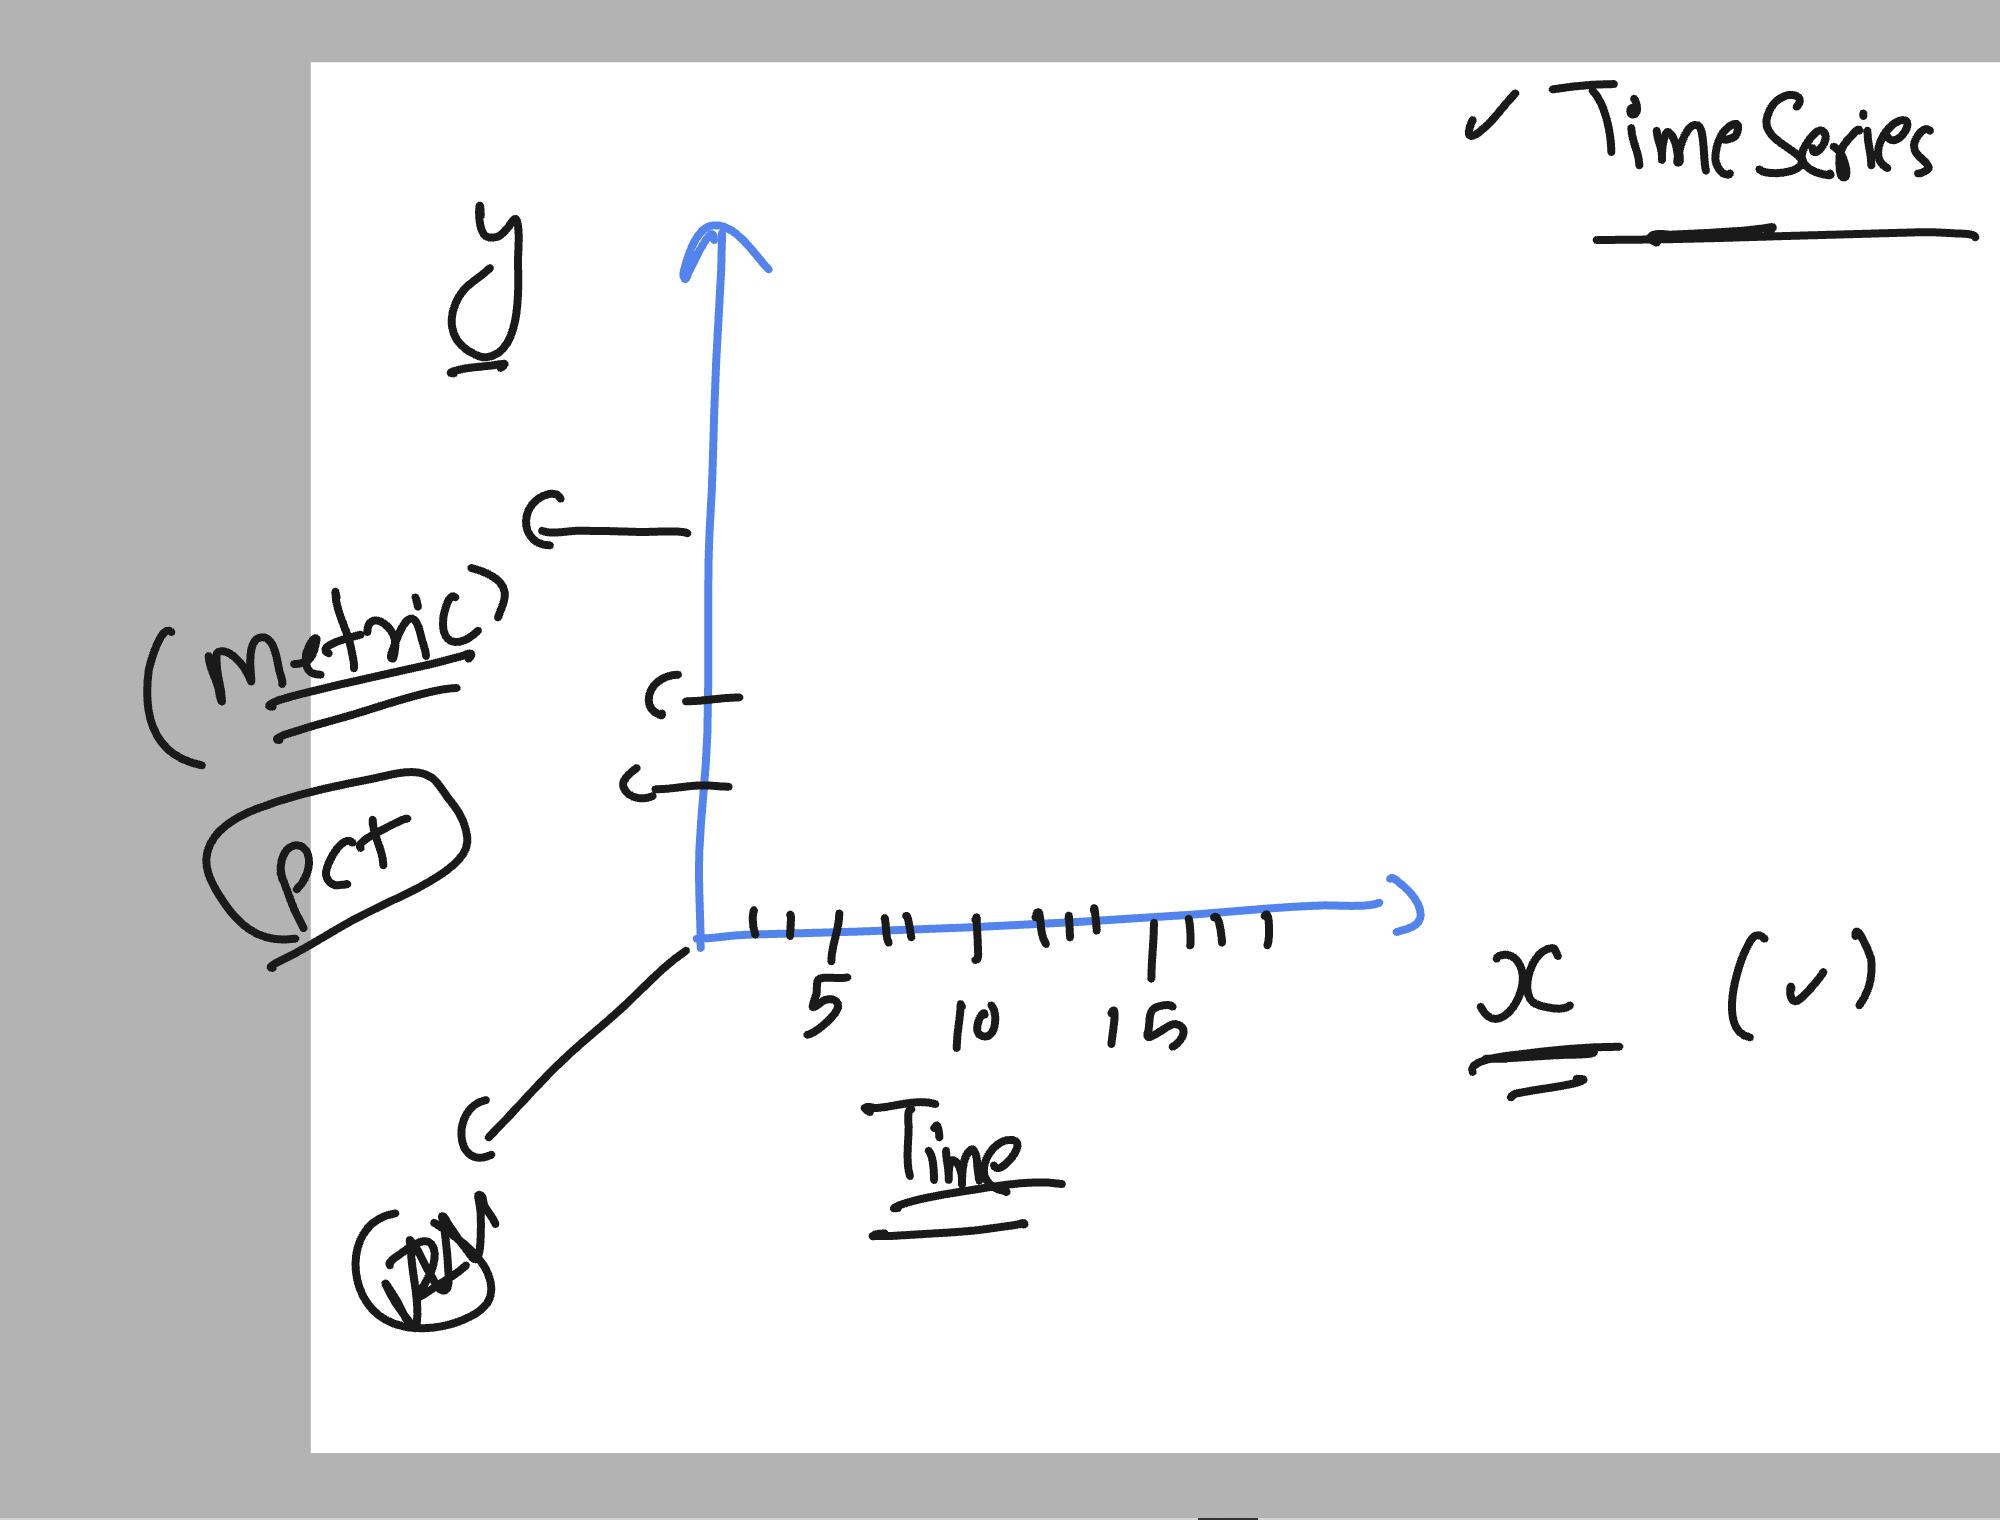 ✓ Time Series
y
(metric)
pct
5 10 15
x (✓)
Time